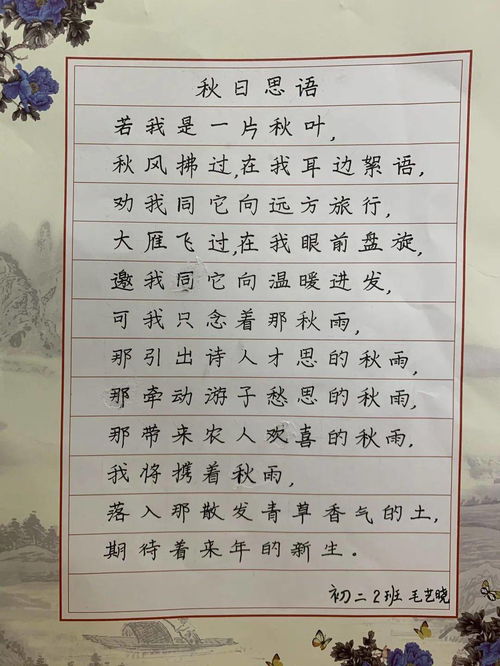 秋日思语
若我是一片秋叶,
秋风拂过,在我耳边絮语,
劝我同它向远方旅行,
大雁飞过,在我眼前盘旋,
邀我同它向温暖进发,
可我只念着那秋雨,
那引出诗人才思的秋雨,
那牵动游子愁思的秋雨,
那带来农人欢喜的秋雨,
我将携着秋雨,
落入那散发青草香气的土,
期待着来年的新生。
初二2班 毛艺晓